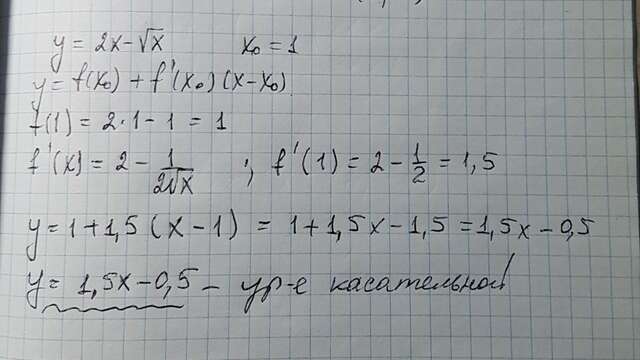 y = 2x - √x x₀ = 1
y = f(x₀) + f'(x₀)(x - x₀)
f(1) = 2·1 - 1 = 1
f'(x) = 2 - 1/(2√x) ; f'(1) = 2 - 1/2 = 1,5
y = 1 + 1,5(x - 1) = 1 + 1,5x - 1,5 = 1,5x - 0,5
y = 1,5x - 0,5 - ур-е касательной